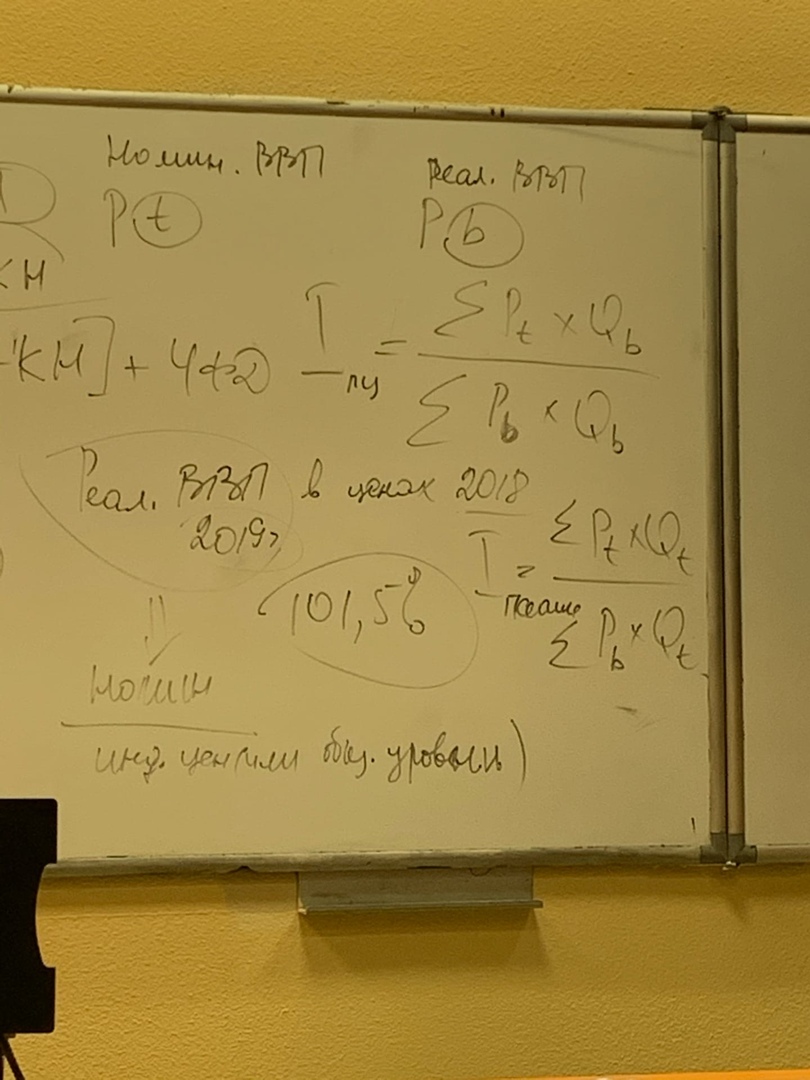 Номин. ВВП
Реал. ВВП
P t
P b
КН
КН] + ЧФД
I ПЦ = Σ Pt × Qb
Σ Pb × Qb
Реал. ВВП в ценах 2018
2019г
I Пааше = Σ Pt × Qt
Σ Pb × Qt
101,5%
номин
инд. цен (или общ. уровень)